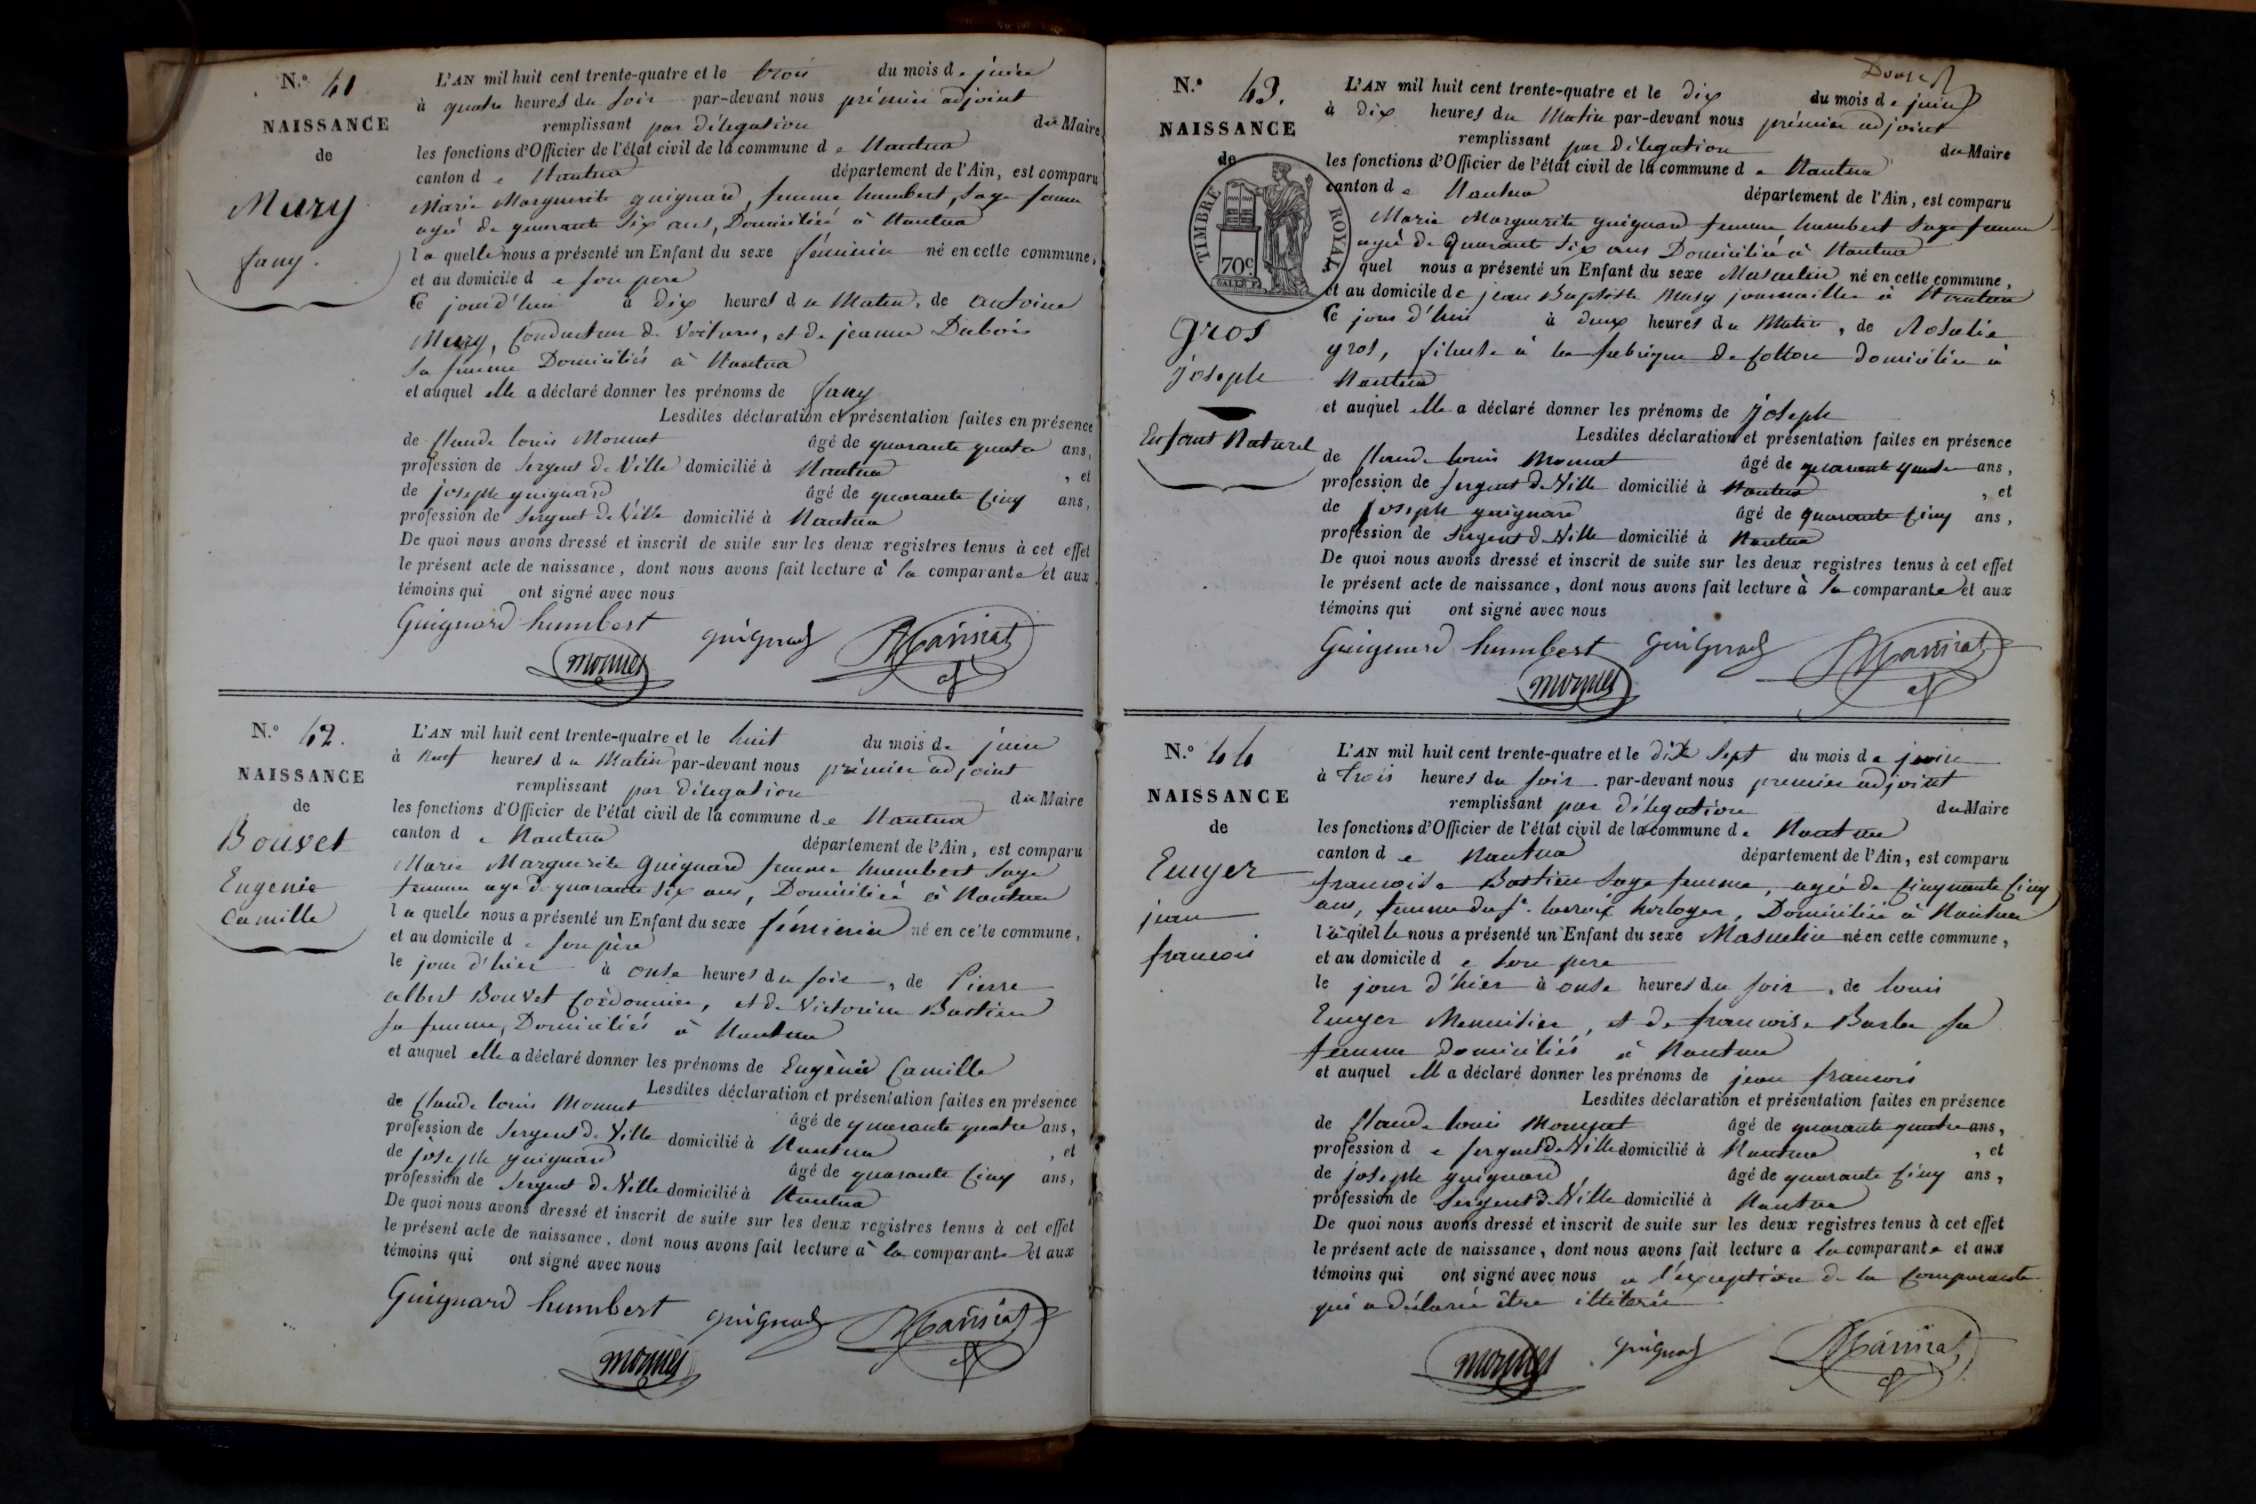 N.o 41
NAISSANCE
de
Mury
fany.
L'AN mil huit cent trente-quatre et le trois du mois de juin
à quatre heures du soir par-devant nous prémier adjoint
remplissant par délégation du Maire
les fonctions d'Officier de l'état civil de la commune de Nantua
canton de Nantua département de l'Ain, est comparu
Marie Marguerite guignard, femme humbert, Sage femme
agée de quarante six ans, Domiciliée à Nantua
laquelle nous a présenté un Enfant du sexe féminin né en cette commune,
et au domicile de son pere
Ce jourd'hui à dix heures du Matin, de antoine
Mury, Conducteur de Voitures, et de jeanne Dubois
Sa femme Domiciliés à Nantua
et auquel elle a déclaré donner les prénoms de fany
Lesdites déclaration et présentation faites en présence
de Claude louis Monnet âgé de quarante quatre ans,
profession de Sergent de Ville domicilié à Nantua, et
de joseph guignard âgé de quarante Cinq ans,
profession de Sergent de Ville domicilié à Nantua
De quoi nous avons dressé et inscrit de suite sur les deux registres tenus à cet effet
le présent acte de naissance, dont nous avons fait lecture à la comparante et aux
témoins qui ont signé avec nous
Guignard humbert guignard
monnet
N.o 42.
NAISSANCE
de
Bouvet
Eugenie
Camille
L'AN mil huit cent trente-quatre et le huit du mois de juin
à Neuf heures du Matin par-devant nous prémier adjoint
remplissant par délégation du Maire
les fonctions d'Officier de l'état civil de la commune de Nantua
canton de Nantua département de l'Ain, est comparu
Marie Marguerite Guignard femme humbert Sage
femme agé de quarante six ans, Domiciliée à Nantua
laquelle nous a présenté un Enfant du sexe féminin né en cette commune,
et au domicile de son père
le jour d'hier à onse heures du soir, de Pierre
albert Bouvet Cordonnier, et de Victorine Bastien
sa femme, Domiciliés à Nantua
et auquel elle a déclaré donner les prénoms de Eugènie Camille
Lesdites déclaration et présentation faites en présence
de Claude louis Monnet âgé de quarante quatre ans,
profession de Sergent de Ville domicilié à Nantua, et
de joseph guignard âgé de quarante Cinq ans,
profession de Sergent de Ville domicilié à Nantua
De quoi nous avons dressé et inscrit de suite sur les deux registres tenus à cet effet
le présent acte de naissance, dont nous avons fait lecture à la comparante et aux
témoins qui ont signé avec nous
Guignard humbert guignard
monnet
N.o 43.
NAISSANCE
de
TIMBRE ROYAL
70c
gros
joseph
Enfant Naturel
L'AN mil huit cent trente-quatre et le dix du mois de juin
à dix heures du Matin par-devant nous prémier adjoint
remplissant par délégation du Maire
les fonctions d'Officier de l'état civil de la commune de Nantua
canton de Nantua département de l'Ain, est comparu
Marie Marguerite guignard femme humbert Sage femme
agée de Quarante Six ans Domiciliée à Nantua
quel nous a présenté un Enfant du sexe Masculin né en cette commune,
et au domicile de jean Baptiste Musy journaillier à Nantua
Ce jour d'hui à deux heures du Matin, de Rosalie
gros, fileuse à la fabrique de Cotton domiciliée à
Nantua
et auquel elle a déclaré donner les prénoms de joseph
Lesdites déclaration et présentation faites en présence
de Claude louis Monnet âgé de quarante quatre ans,
profession de Sergent de Ville domicilié à Nantua, et
de joseph guignard âgé de quarante Cinq ans,
profession de Sergent de Ville domicilié à Nantua
De quoi nous avons dressé et inscrit de suite sur les deux registres tenus à cet effet
le présent acte de naissance, dont nous avons fait lecture à la comparante et aux
témoins qui ont signé avec nous
Guignard humbert guignard
monnet
N.o 44
NAISSANCE
de
Emyer
jean
francois
L'AN mil huit cent trente-quatre et le dix Sept du mois de juin
à trois heures du soir par-devant nous premier adjoint
remplissant par délégation du Maire
les fonctions d'Officier de l'état civil de la commune de Nantua
canton de Nantua département de l'Ain, est comparu
francoise Bastien Sage femme, agée de Cinquante Cinq
ans, femme du Sr. lacroix horloger, Domiciliée à Nantua
laquelle nous a présenté un Enfant du sexe Masculin né en cette commune,
et au domicile de son pere
le jour d'hier à onse heures du soir, de louis
Emyer Menuisier, et de francoise Barbe sa
femme domiciliés à Nantua
et auquel elle a déclaré donner les prénoms de jean francois
Lesdites déclaration et présentation faites en présence
de Claude louis Monnet âgé de quarante quatre ans,
profession de Sergent de Ville domicilié à Nantua, et
de joseph guignard âgé de quarante Cinq ans,
profession de Sergent de Ville domicilié à Nantua
De quoi nous avons dressé et inscrit de suite sur les deux registres tenus à cet effet
le présent acte de naissance, dont nous avons fait lecture a la comparante et aux
témoins qui ont signé avec nous a l'exception de la Comparante
qui a déclaré être illiterée
monnet guignard